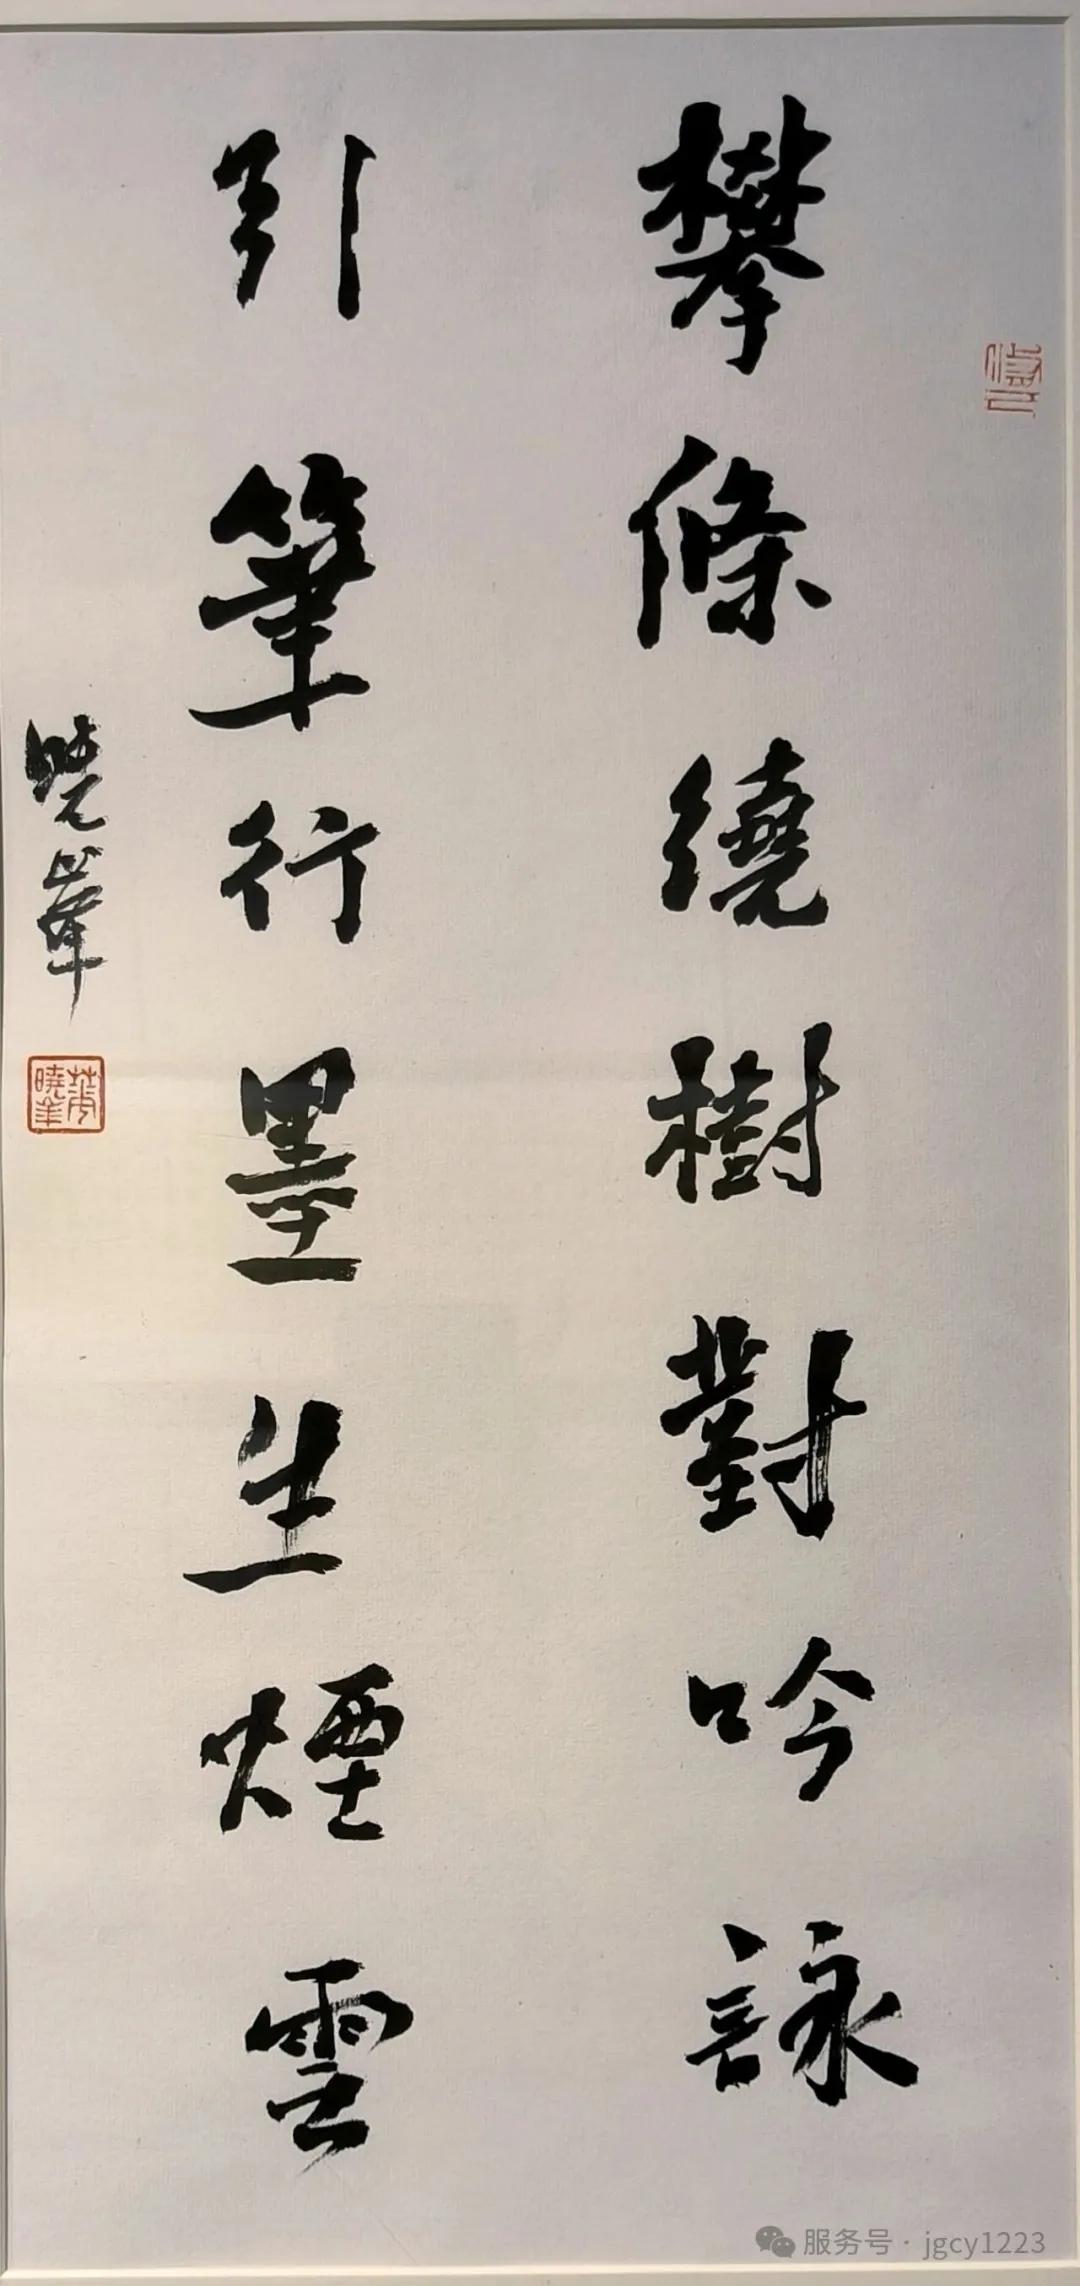 攀條繞樹對吟詠
引筆行墨生煙雲
曉華
曉華
服务号 · jgcy1223